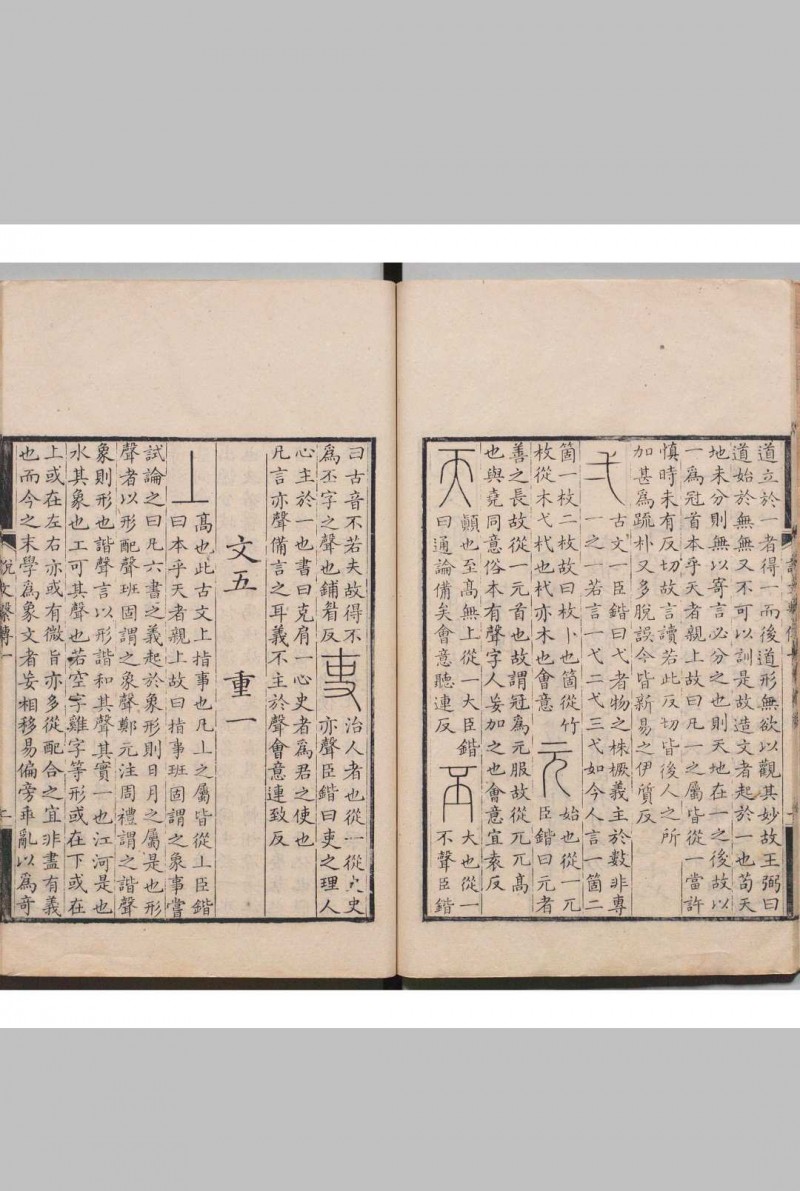 道立於一者得一而後道形無欲以觀其妙故王弼曰
道始於無無又不可以訓是故造文者起於一也苟天
地未分則無以寄言必分之也則天地在一之後故以
一爲冠首本乎天者親上故曰凡一之屬皆從一當許
慎時未有反切故言讀若此反切皆後人之所
加甚爲疏朴又多脫誤今皆新易之伊質反
弌
古文一臣鍇曰弋者物之株橛義主於數非專
一之一若言一弋二弋三弋如今人言一箇二
箇一枚二枚故曰枚卜也箇從竹
枚從木弋杙也杙亦木也會意
元
始也從一兀
臣鍇曰元者
善之長故從一元首也故謂冠爲元服故從兀兀高
也與堯同意俗本有聲字人妄加之也會意宜袁反
天
顚也至高無上從一大臣鍇
曰通論備矣會意聽連反
丕
大也從一
不聲臣鍇
曰古音不若夫故得不
爲丕字之聲也鋪眉反
吏
治人者也從一從史史
亦聲臣鍇曰吏之理人
心主於一也書曰克肩一心史者爲君之使也
凡言亦聲備言之耳義不主於聲會意連致反
文五 重一
丄
髙也此古文上指事也凡丄之屬皆從丄臣鍇
曰本乎天者親上故曰指事班固謂之象事嘗
試論之曰凡六書之義起於象形則日月之屬是也形
聲者以形配聲班固謂之象聲鄭元注周禮謂之諧聲
象則形也諧聲言以形諧和其聲其實一也江河是也
水其象也工可其聲也若空字雞字等形或在下或在
上或在左右亦或有微旨亦多從配合之宜非盡有義
也而今之末學爲象文者妄相移易偏旁乖亂以爲奇
說文繫傳一
二